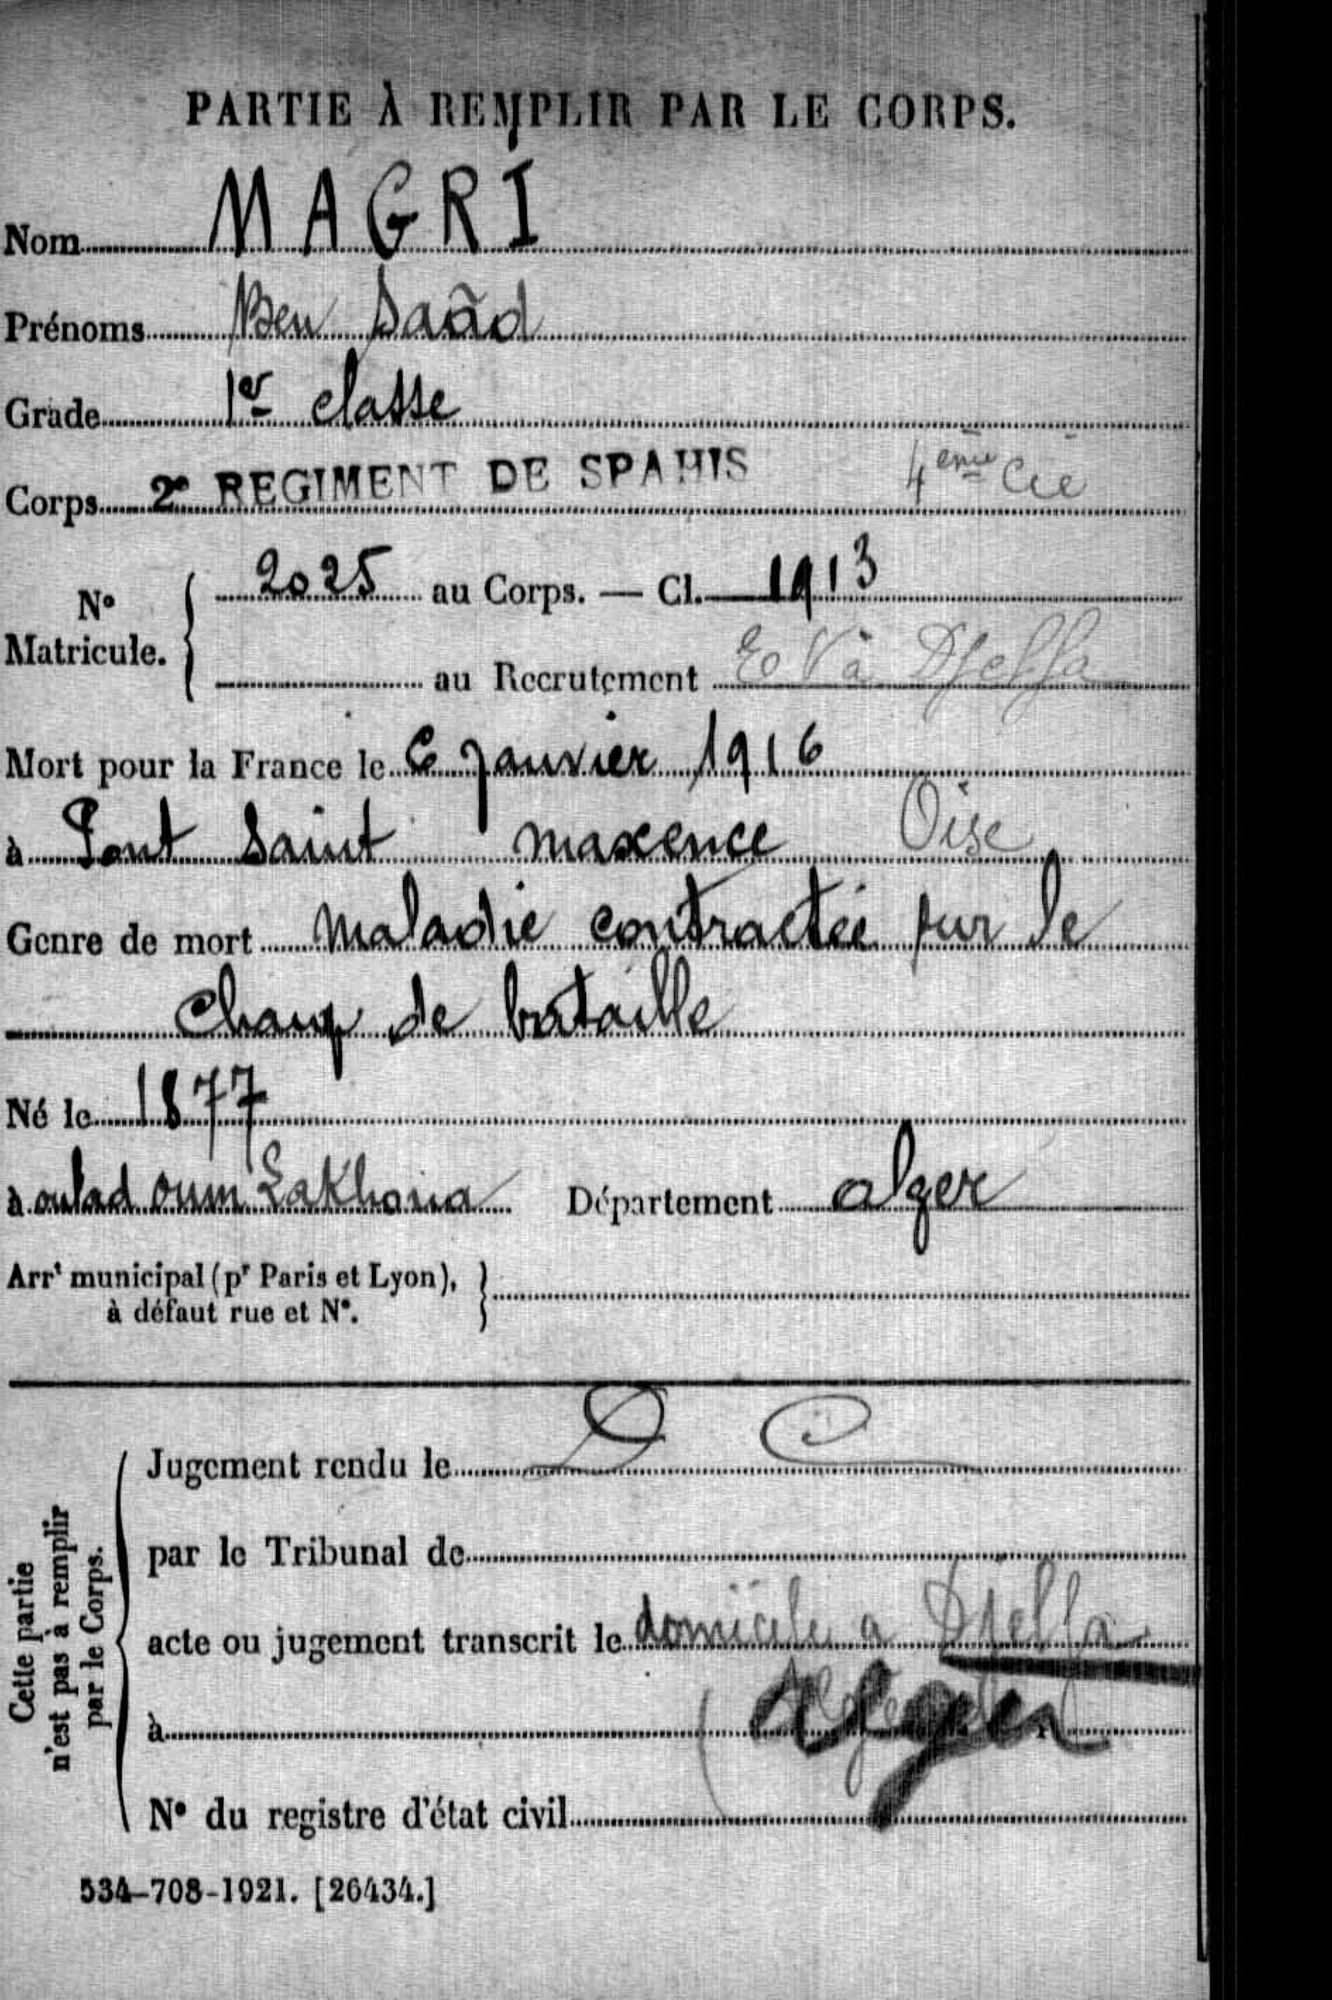 PARTIE À REMPLIR PAR LE CORPS.
Nom MAGRI
Prénoms Ben Saâd
Grade 1er classe
Corps 2e REGIMENT DE SPAHIS 4eme Cie
No Matricule. 2025 au Corps. — Cl. 1913
au Recrutement E Và Djelfa
Mort pour la France le 6 janvier 1916
à Pont Saint maxence Oise
Genre de mort maladie contractée sur le
champ de bataille
Né le 1877
à oulad oum Lakhoua Département alger
Arrt municipal (pr Paris et Lyon),
à défaut rue et No.
Cette partie n'est pas à remplir par le Corps.
Jugement rendu le
par le Tribunal de
acte ou jugement transcrit le domicile a Djelfa
à alger
No du registre d'état civil
534-708-1921. [26434.]